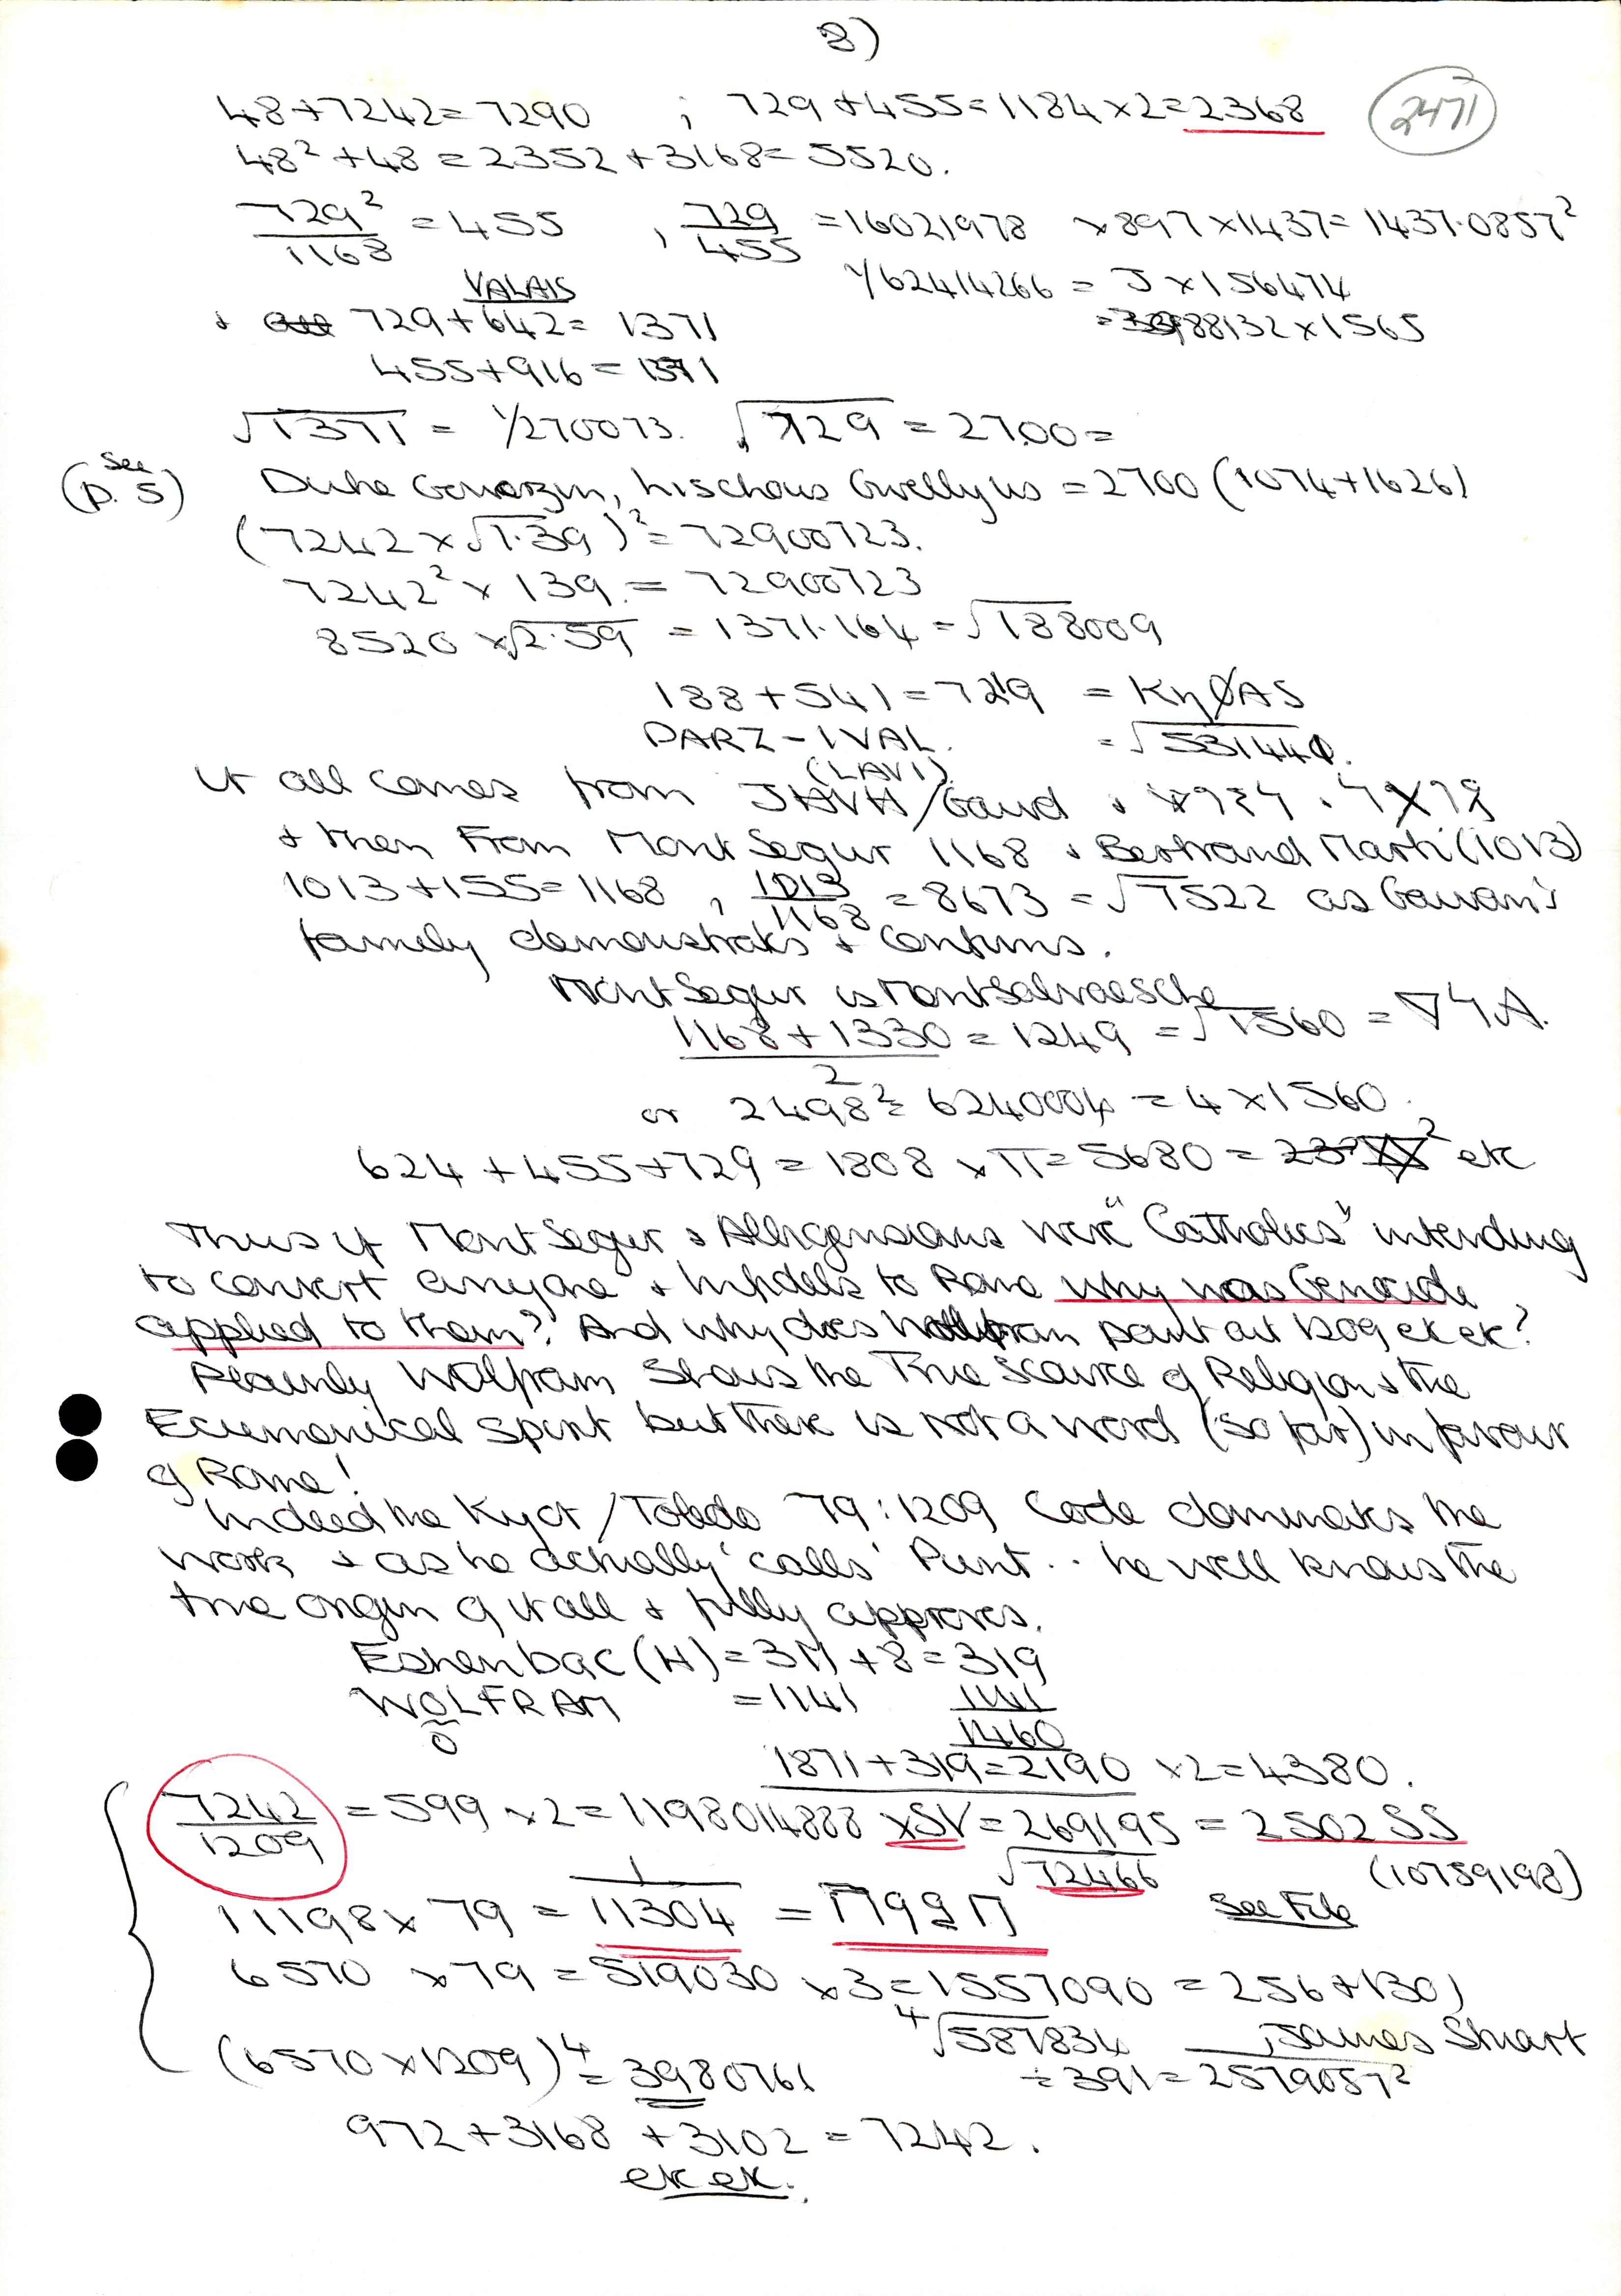 8)
2471
48+7242=7290 ; 729+455=1184×2=2368
48²+48=2352+3168=5520.
729²/1168 = 455 , 729/455 =16021978 ×897×1437=1437.0857²
VALAIS 1/62414266 = J×156474
+ 729+642= 1371 = 88132×1565
455+916=1371
√1371 = 1/270073. √729 = 27.00=
(See p. 5) Duke Gowerzin, Lischous Gwellyus =2700 (1074+1626)
(7242×√1.39)²=72900723.
7242²×139.=72900723
8520 ×√2.59 = 1371.164 =√188009
188+541=729 = KηØAS
PARZ-IVAL. =√531441.
(LAVI)
It all comes from JHVH/Gawd +
+ then From MontSegur 1168 + Bertrand Marti(1013)
1013+155=1168 , 1013/1168 =8673=√7522 as Gawan's
family demonstrates + confirms.
MontSegur is MontSalvaesche
1168+1330/2 =1249 =√1560 =
or 2498²= 6240004 = 4×1560.
624+455+729=1808 ×π=5680= etc
Thus if MontSegur & Albigensians were "Catholics" intending
to convert anyone + Infidels to Rome why was Genocide
applied to them? And why does Wolfram point out 1209 etc etc?
Plainly Wolfram Shows the True Source of Religion & the
Ecumenical Spirit but there is not a word (so far) in favour
of Rome!
Indeed the Kyot/Toledo 79:1209 Code dominates the
work + as he actually 'calls' Punt.. he well knows the
true origin of it all + fully approves.
Eshenbac(H)=311+8=319
WOLFRAM =1141 1141
O 1460
1871+319=2190 ×2=4380.
7242/1209 =599×2=1198014888 ×SV=269195 = 2502 SS
√72466 (10759198)
11198×79 = 1/11304 = See File
6570 ×79=519030 ×3=1557090 =256+1301
⁴√587834 , James Stuart
(6570×1209)⁴= 3980761 ÷391=2579057²
972+3168+3102=7242.
etc etc.